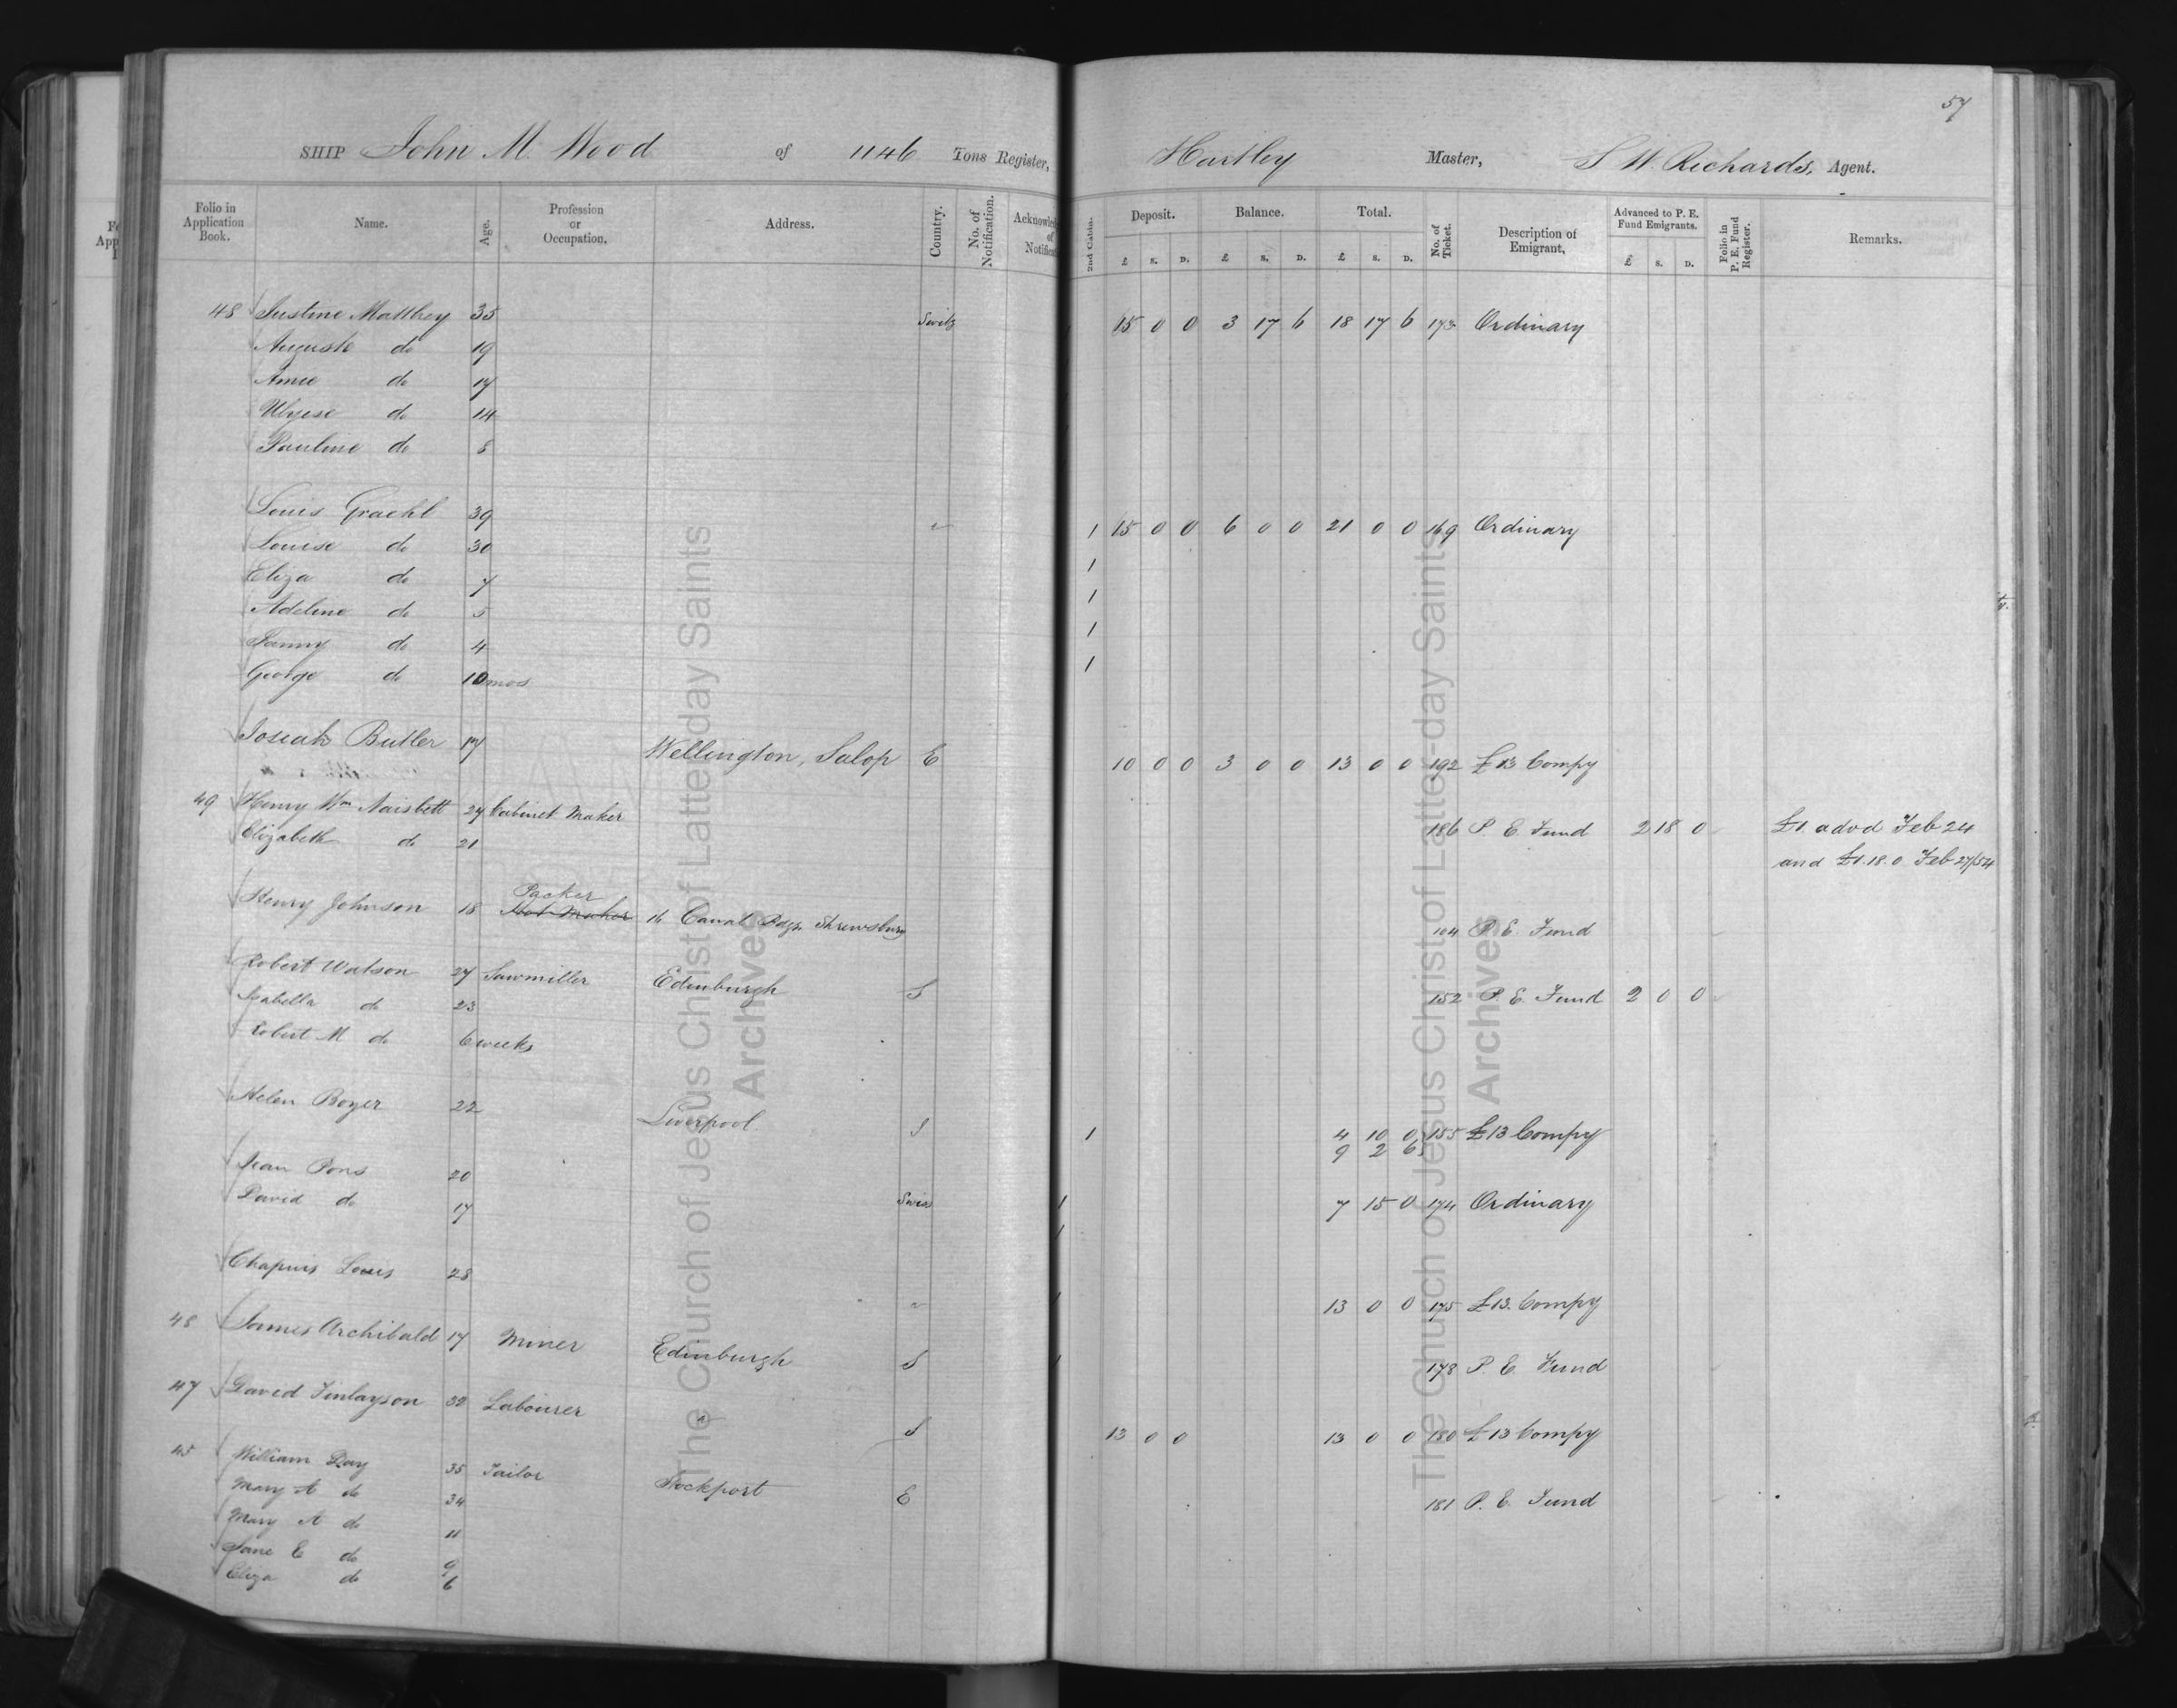 57
SHIP John M. Wood of 1146 Tons Register, Hartley Master, S W. Richards, Agent.
Folio in Application Book. Name. Age. Profession or Occupation. Address. Country. No. of Notification. Acknowled of Notificat 2nd Cabin. Deposit. £ S. D. Balance. £ S. D. Total. £ S. D. No. of Ticket. Description of Emigrant. Advanced to P. E. Fund Emigrants. £ S. D. Folio in P. E. Fund Register. Remarks.
48 Justine Matthey 35 Switz 15 0 0 3 17 6 18 17 6 173 Ordinary
Auguste do 19
Amie do 17
Ulysse do 14
Pauline do 8
Louis Graehl 39 " 1 15 0 0 6 0 0 21 0 0 169 Ordinary
Louise do 30 1
Eliza do 7 1
Adeline do 5 1
Fanny do 4 1
George do 10 mos
Josiah Butler 17 Wellington, Salop E 10 0 0 3 0 0 13 0 0 192 £13 Compy
49 Henry Wm Naisbett 27 Cabinet Maker 186 P. E. Fund 2 18 0 £1. advd Feb 24
Elizabeth do 21 and £1.18.0 Feb 27/54
Packer
Henry Johnson 18 16 Canal Bdgs, Shrewsbury 104 P. E. Fund
Robert Watson 27 Sawmiller Edinburgh S 152 P. E. Fund 2 0 0
Isabella do 23
Robert M do 6 weeks
Helen Boyer 22 Liverpool. S 1 4 10 0 155 £13 Compy
9 2 6
Jean Pons 20 Swiss 1 7 15 0 174 Ordinary
David do 17 1
Chapuis Louis 28 " 1 13 0 0 175 £13. Compy
48 James Archibald 17 Miner Edinburgh S 1 178 P. E. Fund
47 David Finlayson 32 Labourer " S 13 0 0 13 0 0 180 £13 Compy
45 William Day 35 Tailor Stockport E 181 P. E. Fund
Mary A do 34
Mary A do 11
Jane E do 9
Eliza do 6
The Church of Jesus Christ of Latter-day Saints
Archives
The Church of Jesus Christ of Latter-day Saints
Archives